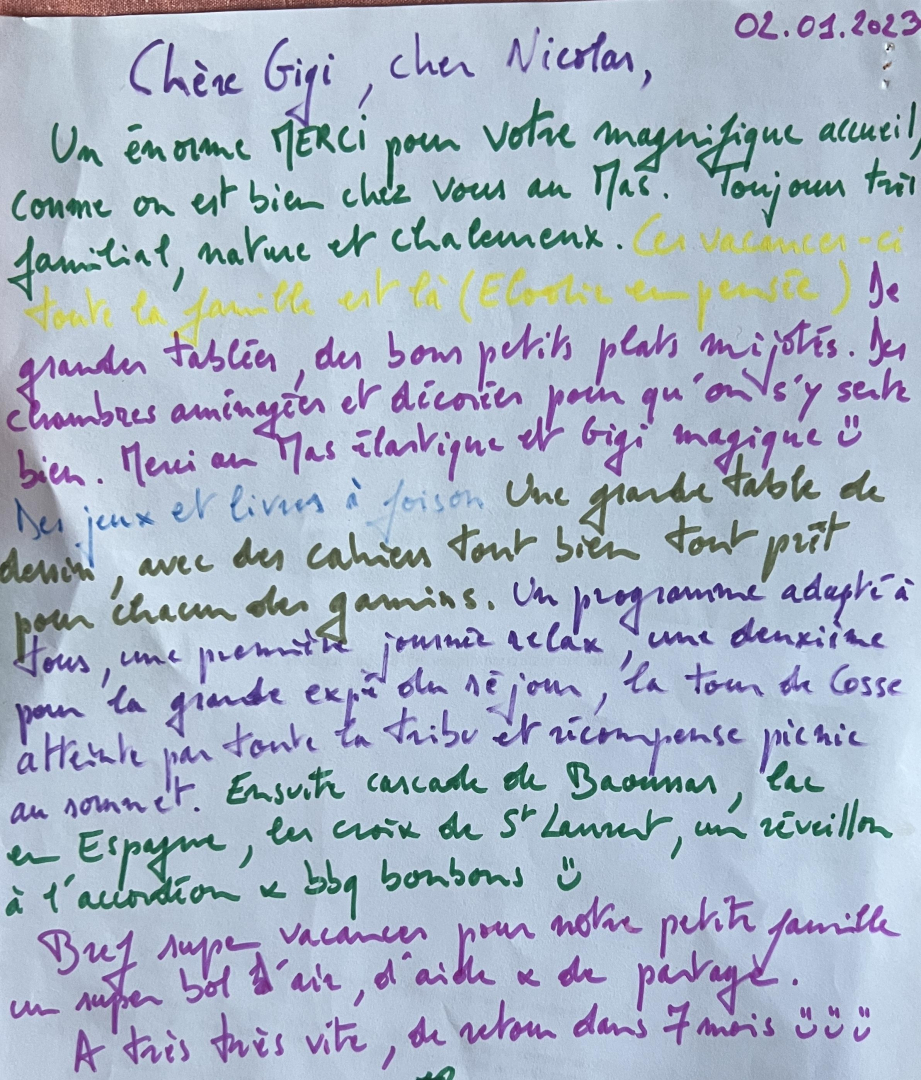 02.01.2023
Chère Gigi, cher Nicolas,
Un énorme MERCI pour votre magnifique accueil,
comme on est bien chez vous au Mas. Toujours très
familial, nature et chaleureux. Ces vacances-ci
toute la famille est là (Elodie en pensée) De
grandes tablées, des bons petits plats mijotés. Des
chambres aménagées et décorées pour qu'on s'y sente
bien. Merci au Mas élastique et Gigi magique ü
Des jeux et livres à foison Une grande table de
dessin, avec des cahiers tout bien tout prêt
pour chacun des gamins. Un programme adapté à
tous, une première journée relax, une deuxième
pour la grande expé du séjour, la tour de Cosse
atteinte par toute la tribu et récompense picnic
au sommet. Ensuite cascade de Baoussas, lac
en Espagne, les croix de St Laurent, un réveillon
à l'accordéon & bbq bonbons ü
Bref super vacances pour notre petite famille
un super bol d'air, d'aide & de partage.
A très très vite, de retour dans 7 mois ü ü ü